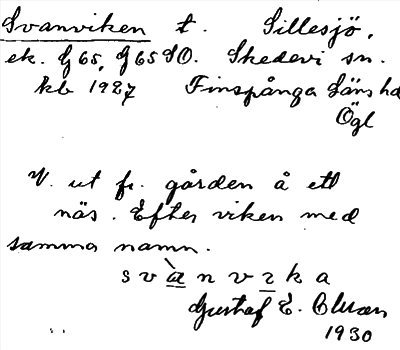 Svanviken t. Sillesjö,
ek. G 65, G 65 SO. Skedevi sn.
kb 1927 Finspånga läns hd
Ögl
V. ut fr. gården å ett
näs. Efter viken med
samma namn.
svànvɩka
Gustaf E.
1930